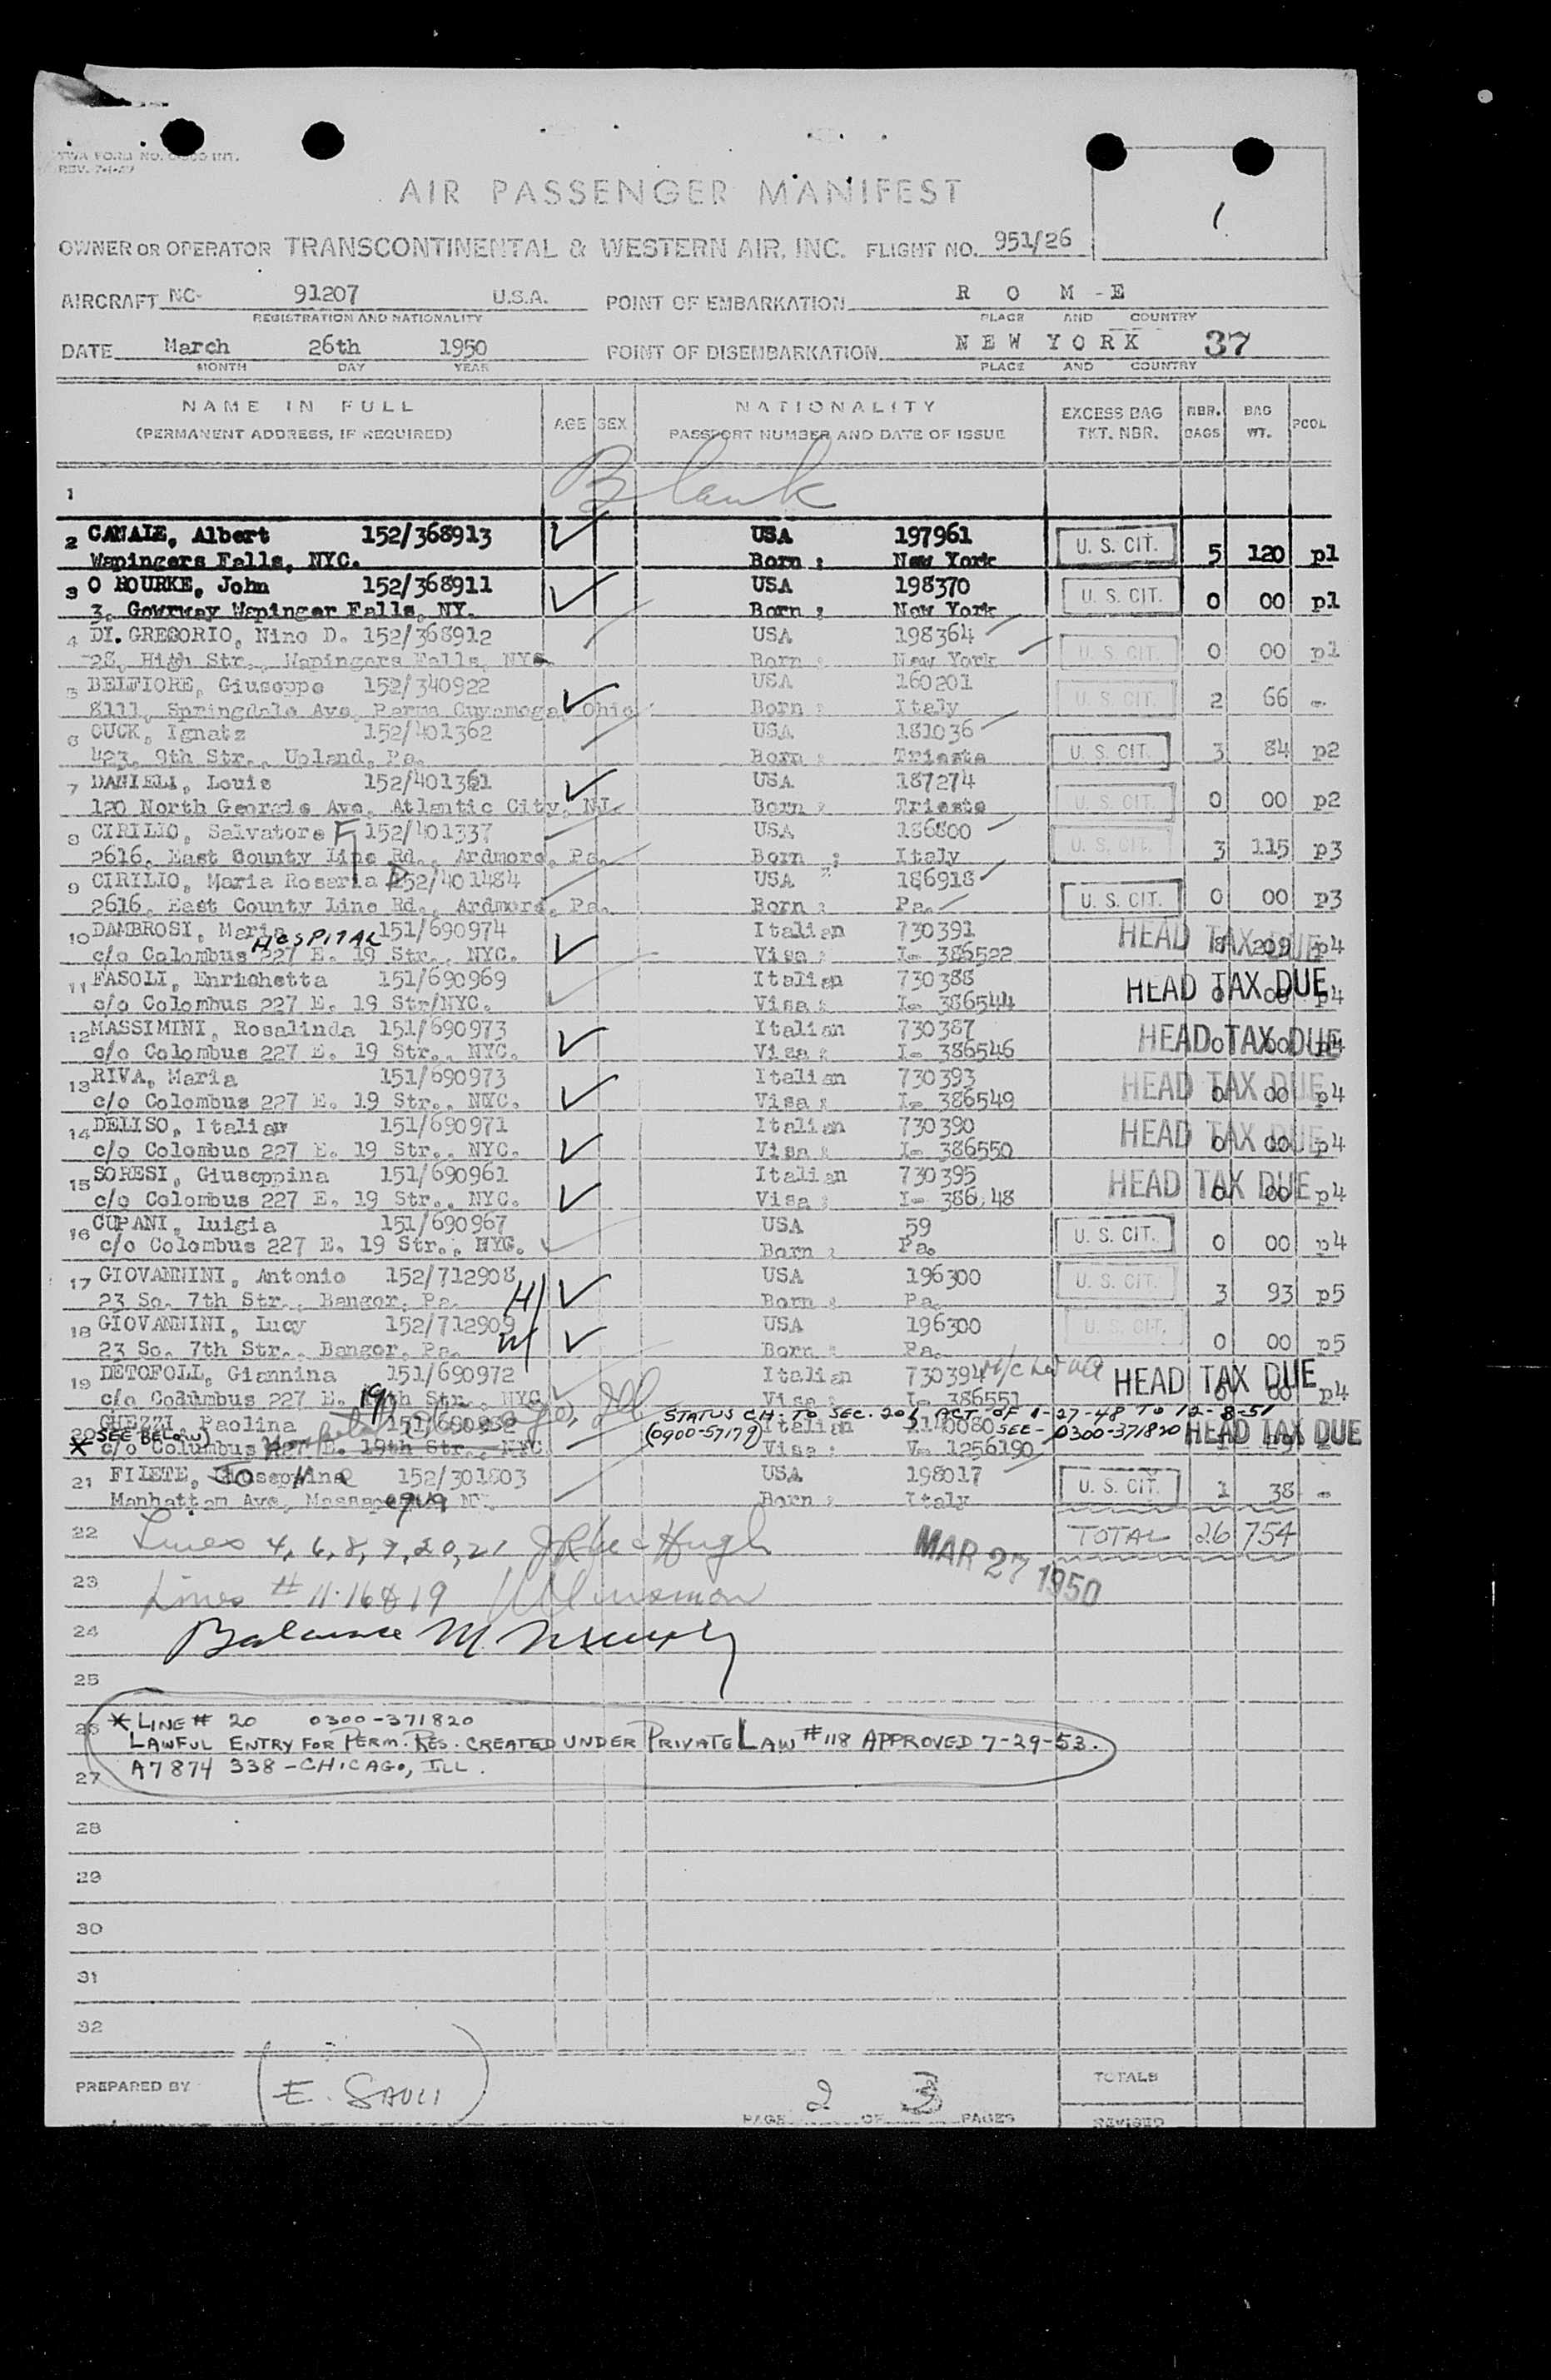 TWA FORM NO. INT.
REV. 7-1-49
AIR PASSENGER MANIFEST
1
OWNER OR OPERATOR TRANSCONTINENTAL & WESTERN AIR, INC. FLIGHT NO. 951/26
AIRCRAFT NC- 91207 U.S.A. POINT OF EMBARKATION R O M - E
REGISTRATION AND NATIONALITY PLACE AND COUNTRY
DATE March 26th 1950 POINT OF DISEMBARKATION N E W Y O R K 37
MONTH DAY YEAR PLACE AND COUNTRY
NAME IN FULL AGE SEX NATIONALITY EXCESS BAG NBR. BAG PCOL
(PERMANENT ADDRESS, IF REQUIRED) PASSPORT NUMBER AND DATE OF ISSUE TKT. NBR. BAGS WT.
1 Blank
2 CANALE, Albert 152/368913 USA 197961 U. S. CIT. 5 120 p1
Wapingers Falls, NYC. Born : New York
3 O ROURKE, John 152/368911 USA 198370 U. S. CIT. 0 00 p1
3, Gowrway Wapinger Falls, NY. Born : New York
4 DI. GREGORIO, Nino D. 152/368912 USA 198364 U. S. CIT. 0 00 p1
28, High Str., Wapingers Falls, NYC. Born : New York
5 BELFIORE, Giuseppe 152/340922 USA 160201 U. S. CIT. 2 66 -
8111, Springdale Ave, Parma Cuyamoga, Ohio Born : Italy
6 CUCK, Ignatz 152/401362 USA 181036 U. S. CIT. 3 84 p2
423, 9th Str., Upland, Pa. Born : Trieste
7 DANIELI, Louis 152/401361 USA 187274 U. S. CIT. 0 00 p2
120 North Georgie Ave, Atlantic City, NJ. Born : Trieste
8 CIRILIO, Salvatore F 152/401337 USA 186800 U. S. CIT. 3 115 p3
2616, East County Line Rd., Ardmore, Pa. Born : Italy
9 CIRILIO, Maria Rosaria D 152/401484 USA 186918 U. S. CIT. 0 00 p3
2616, East County Line Rd., Ardmore, Pa. Born : Pa.
10 DAMBROSI, Maria 151/690974 Italian 730391 HEAD TAX DUE 8 209 p4
HOSPITAL
c/o Colombus 227 E. 19 Str., NYC. Visa : I- 386522
11 FASOLI, Enrichetta 151/690969 Italian 730388 HEAD TAX DUE 0 00 p4
c/o Colombus 227 E. 19 Str/NYC. Visa : I- 386544
12 MASSIMINI, Rosalinda 151/690973 Italian 730387 HEAD TAX DUE 0 00 p4
c/o Colombus 227 E. 19 Str., NYC. Visa : I- 386546
13 RIVA, Maria 151/690973 Italian 730393 HEAD TAX DUE 0 00 p4
c/o Colombus 227 E. 19 Str., NYC. Visa : I- 386549
14 DELISO, Italian 151/690971 Italian 730390 HEAD TAX DUE 0 00 p4
c/o Colombus 227 E. 19 Str., NYC. Visa : I- 386550
15 SORESI, Giuseppina 151/690961 Italian 730395 HEAD TAX DUE 0 00 p4
c/o Colombus 227 E. 19 Str., NYC. Visa : I- 386,48
16 CUPANI, Luigia 151/690967 USA 59 U. S. CIT. 0 00 p4
c/o Colombus 227 E. 19 Str., NYC. Born : Pa.
17 GIOVANNINI, Antonio 152/712908 USA 196300 U. S. CIT. 3 93 p5
23 So. 7th Str., Bangor, Pa. H Born : Pa.
18 GIOVANNINI, Lucy 152/712909 USA 196300 U. S. CIT. 0 00 p5
23 So. 7th Str., Bangor, Pa. W Born : Pa.
19 DETOFOLL, Giannina 151/690972 Italian 730394 HEAD TAX DUE 0 00 p4
c/o Columbus 227 E. 19th Str., NYC Visa : I- 386551
STATUS CH. TO SEC. 201 ACT OF 1-27-48 TO 12-8-51
20 GHEZZI, Paolina 151/690932 Italian (0900-57179) SEE- 0300-371820 HEAD TAX DUE
* (SEE BELOW) c/o Columbus 227 E. 19th Str., NYC Visa : V- 1256190
21 FILETE, Giuseppina 152/301803 USA 198017 U. S. CIT. 1 38 -
Manhattam Ave, NY. Born : Italy
22 Lines 4, 6, 8, 9, 20, 21 TOTAL 26 754
MAR 27 1950
23 Lines # 11-16 & 19
24 Balance M.
25
26 * LINE # 20 0300-371820
LAWFUL ENTRY FOR PERM. RES. CREATED UNDER PRIVATE LAW #118 APPROVED 7-29-53.
27 A7 874 338 - CHICAGO, ILL.
28
29
30
31
32
PREPARED BY (E. SAULI) TOTALS
PAGE 2 OF 3 PAGES REVISED